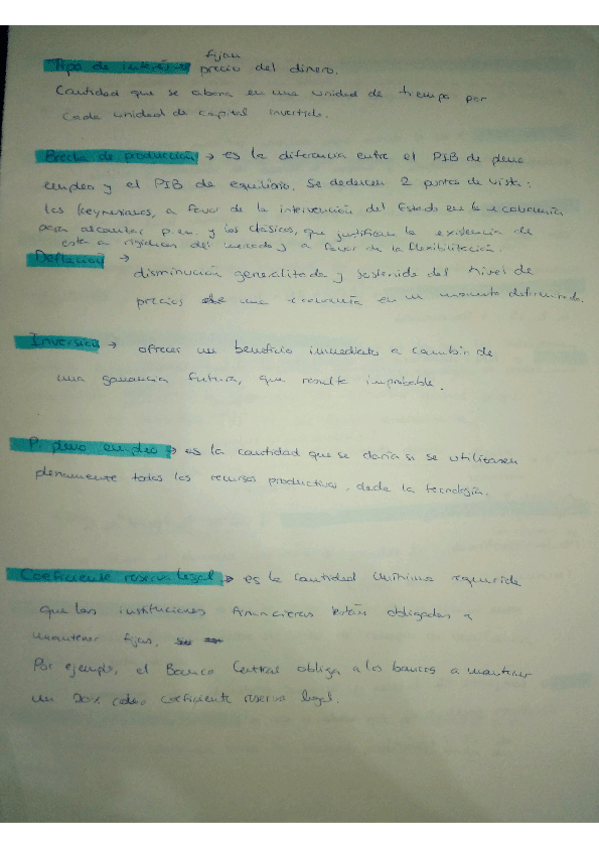 fijan
Tipo de interés precio del dinero.
Cantidad que se abona en una unidad de tiempo por
cada unidad de capital invertido.
Brecha de producción → es la diferencia entre el PIB de pleno
empleo y el PIB de equilibrio. Se deducen 2 puntos de vista:
los keynesianos, a favor de la intervención del Estado en la economía
para alcanzar p.em. y los clásicos, que justifican la existencia de
esta a rigideces del mercado y a favor de la flexibilización.
Deflación →
disminución generalizada y sostenida del nivel de
precios de una economía en un momento determinado.
Inversión → ofrecer un beneficio inmediato a cambio de
una ganancia futura, que resulte improbable.
P. pleno empleo → es la cantidad que se daría si se utilizasen
plenamente todos los recursos productivos, dada la tecnología.
Coeficiente reserva legal → es la cantidad mínima requerida
que las instituciones financieras están obligadas a
mantener fijas.
Por ejemplo, el Banco Central obliga a los bancos a mantener
un 20% como coeficiente reserva legal.